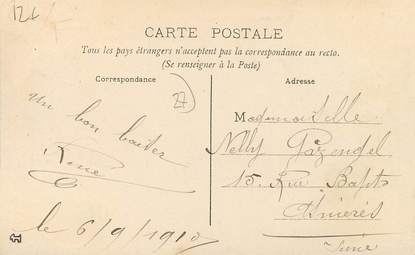 12
CARTE POSTALE
Tous les pays étrangers n'acceptent pas la correspondance au recto.
(Se renseigner à la Poste)
Correspondance
27
un bon baiser
René
le 6/9/1910
Adresse
Mademoiselle
Nelly
15. Rue
Asnières
Seine